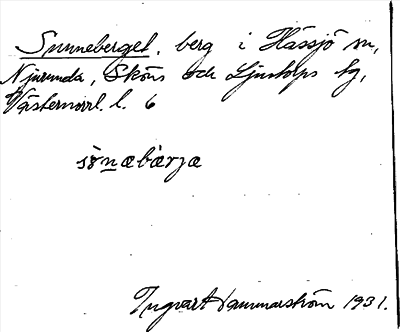 Sunneberget, berg i Hässjö sn,
Njurunda, Sköns och Ljustorps tg,
Västernorrl. l. 6
sönæbærjæ
Ingvart Hammarström 1931.